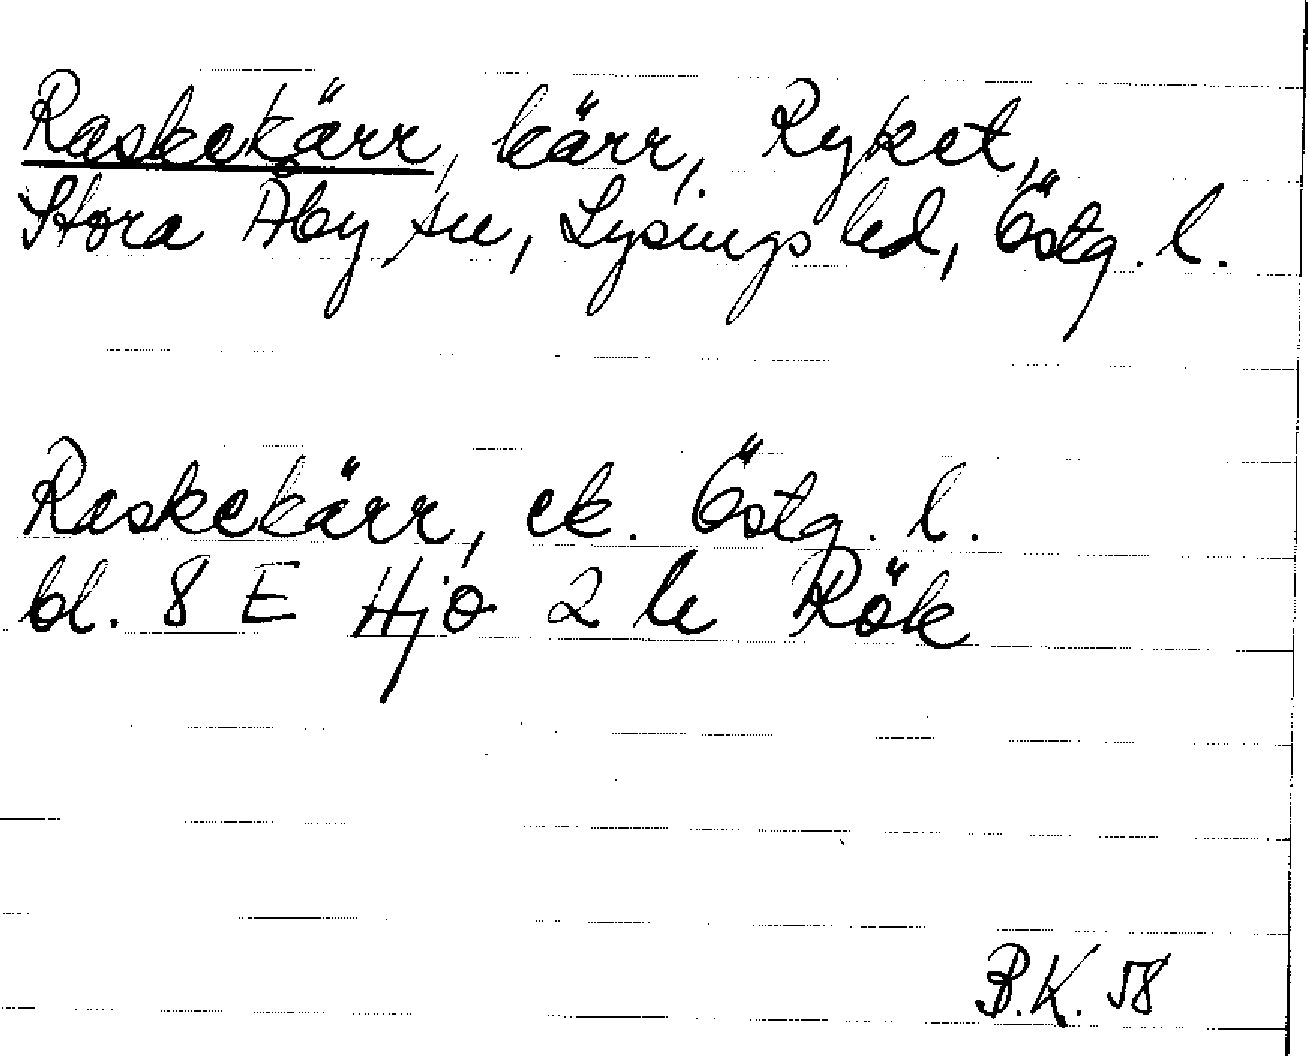 Raskekärr, kärr, Ryket,
Stora Åby sn, Lysings hd, Östg. l.
Raskekärr, ek. Östg. l.
bl. 8 E Hjo 2 h Rök
B.K. 58